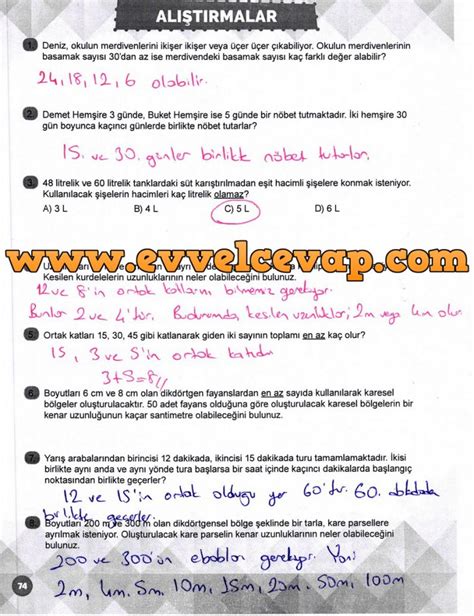 ALIŞTIRMALAR
1. Deniz, okulun merdivenlerini ikişer ikişer veya üçer üçer çıkabiliyor. Okulun merdivenlerinin
basamak sayısı 30'dan az ise merdivendeki basamak sayısı kaç farklı değer alabilir?
24, 18, 12, 6 olabilir.
2. Demet Hemşire 3 günde, Buket Hemşire ise 5 günde bir nöbet tutmaktadır. İki hemşire 30
gün boyunca kaçıncı günlerde birlikte nöbet tutarlar?
15. ve 30. günler birlikte nöbet tutarlar.
3. 48 litrelik ve 60 litrelik tanklardaki süt karıştırılmadan eşit hacimli şişelere konmak isteniyor.
Kullanılacak şişelerin hacimleri kaç litrelik olamaz?
A) 3 L B) 4 L C) 5 L D) 6 L
www.evvelcevap.com
Kesilen kurdelelerin uzunluklarının neler olabileceğini bulunuz.
12 ve 8'in ortak bollarını bilmemiz gerekiyor.
Bunlar 2 ve 4'tür. Bu durumda kesilen uzunluklar; 2m veya 4m olur
5. Ortak katları 15, 30, 45 gibi katlanarak giden iki sayının toplamı en az kaç olur?
15, 3 ve 5'in ortak katıdır
3+5=8//
6. Boyutları 6 cm ve 8 cm olan dikdörtgen fayanslardan en az sayıda kullanılarak karesel
bölgeler oluşturulacaktır. 50 adet fayans olduğuna göre oluşturulacak karesel bölgelerin bir
kenar uzunluğunun kaçar santimetre olabileceğini bulunuz.
7. Yarış arabalarından birincisi 12 dakikada, ikincisi 15 dakikada turu tamamlamaktadır. İkisi
birlikte aynı anda ve aynı yönde tura başlarsa bir saat içinde kaçıncı dakikalarda başlangıç
noktasından birlikte geçerler?
12 ve 15'in ortak olduğu yer 60'tır. 60. dakikada
birlikte geçerler.
8. Boyutları 200 m ve 300 m olan dikdörtgensel bölge şeklinde bir tarla, kare parsellere
ayrılmak isteniyor. Oluşturulacak kare parselin kenar uzunluklarının neler olabileceğini
bulunuz.
200 ve 300'ün ebobları gerekiyor. Yani
2m, 4m, 5m, 10m, 15m, 20m, 50m, 100m
74